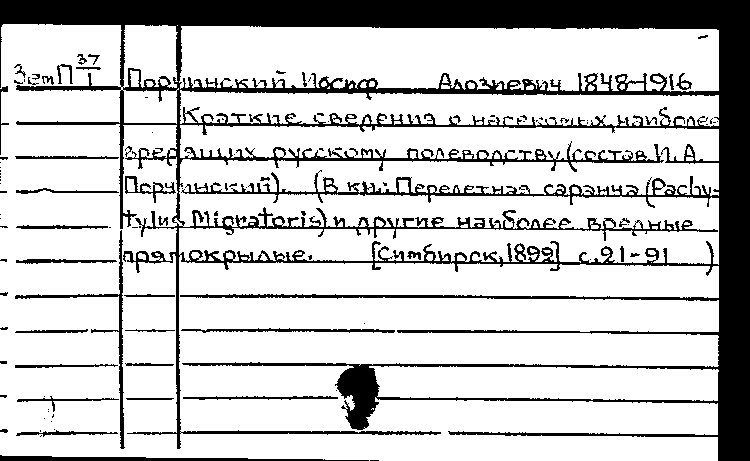 ЗемП 37/1 Порчинский, Иосиф Алозиевич 1848-1916
Краткие сведения о насекомых, наиболее
вредящих русскому полеводству (состав. И. А.
Порчинский). (В кн.: Перелетная саранча (Pachy-
tylus Migratoris) и другие наиболее вредные
прямокрылые. [Симбирск, 1892] с. 21-91 )